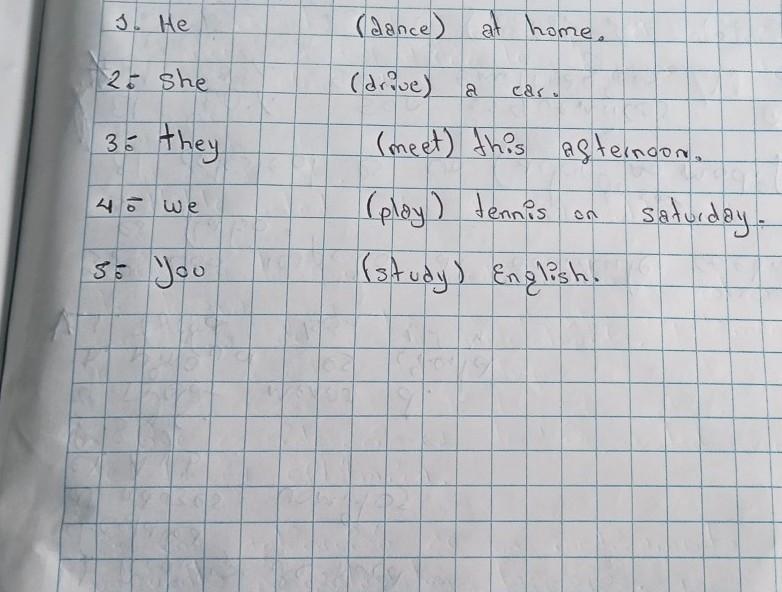 1. He (dance) at home.
2- She (drive) a car.
3- they (meet) this afternoon.
4- we (play) tennis on saturday.
5- You (study) English.